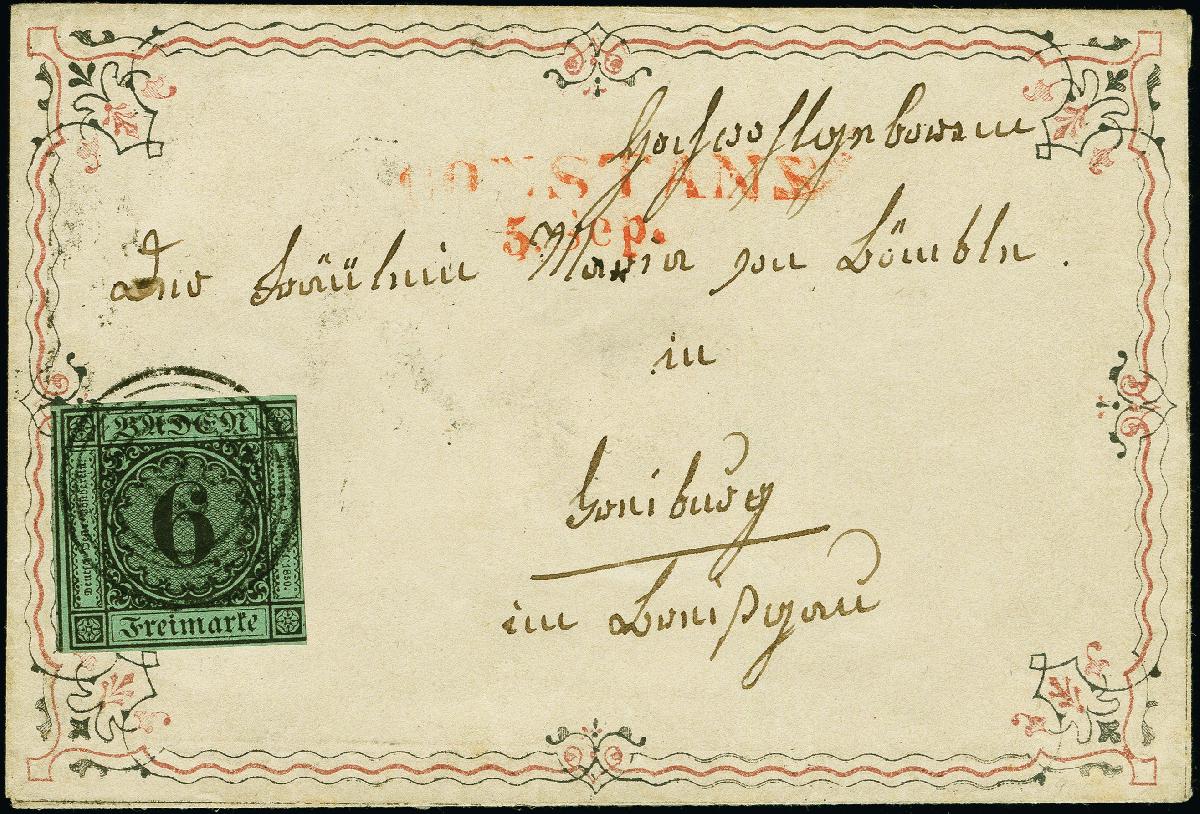 Hochwohlgeboren
CONSTANZ
5. Sep.
Der Fräulein Maria von
in
Freiburg
im Breisgau
BADEN
6
1850.
Freimarke